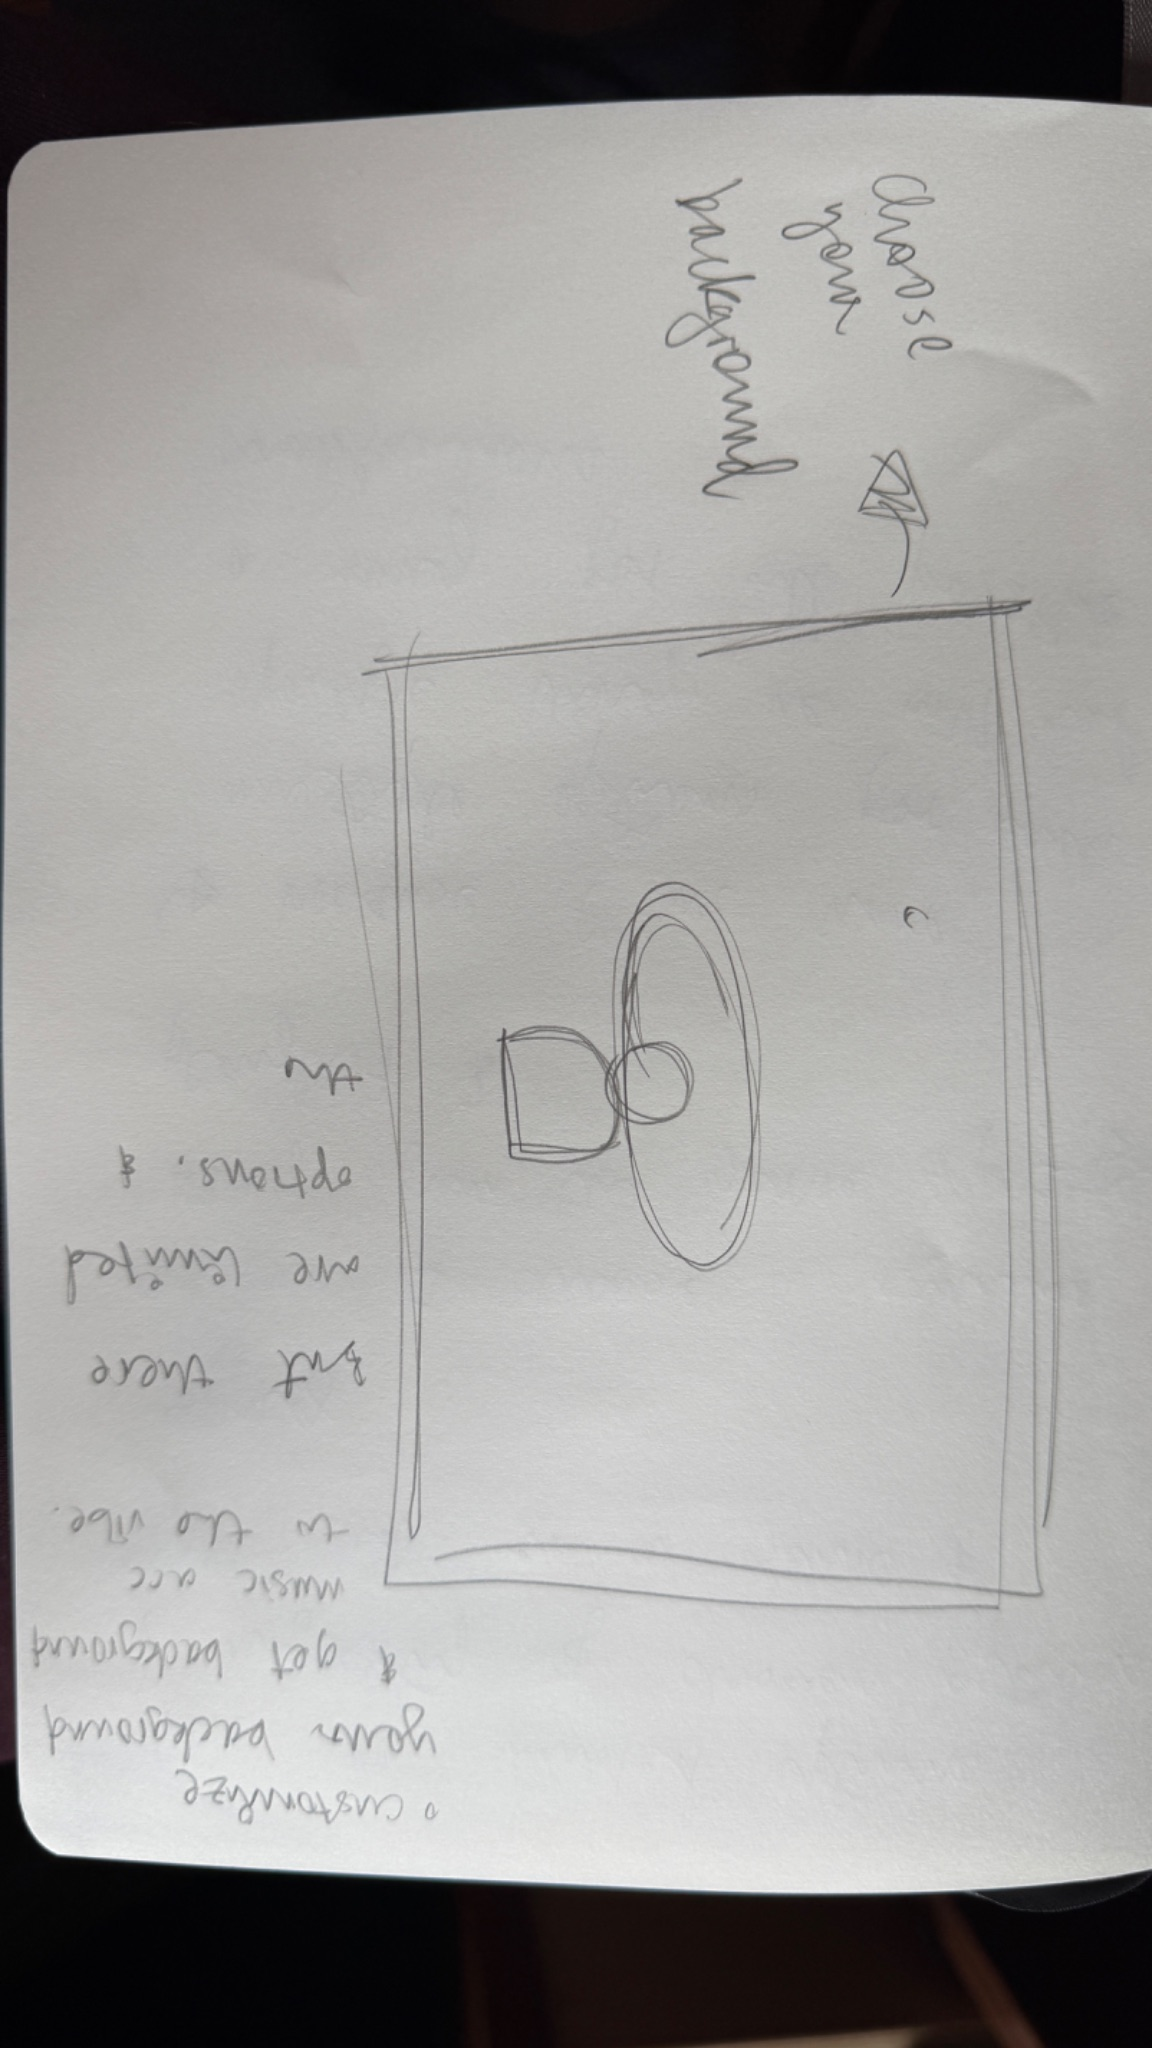 choose
your
background
• customize
your background
& get background
music acc
to the vibe.
But there
are limited
options. &
the